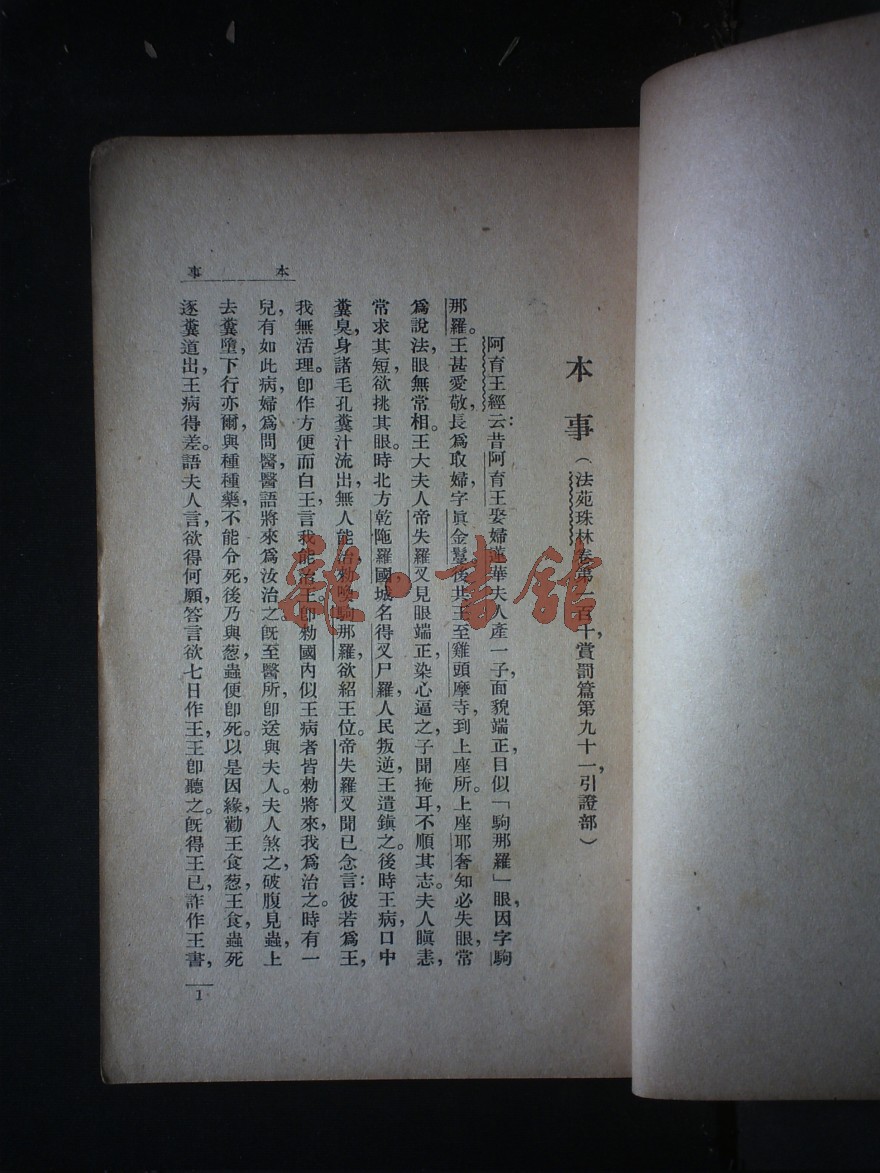 本事
本事（法苑珠林卷第一百十，賞罰篇第九十一，引證部）
阿育王經云：昔阿育王娶婦蓮華夫人產一子，面貌端正，目似「駒那羅」眼，因字駒
那羅。王甚愛敬，長爲取婦，字眞金鬘。後共王至雞頭摩寺，到上座所。上座耶奢知必失眼，常
爲說法，眼無常相。王大夫人帝失羅叉見眼端正，染心逼之，子聞掩耳，不順其志。夫人瞋恚，
常求其短，欲挑其眼。時北方乾陁羅國，城名得叉尸羅，人民叛逆，王遣鎭之。後時王病，口中
糞臭，身諸毛孔糞汁流出，無人能治，勅喚駒那羅，欲紹王位。帝失羅叉聞已念言：彼若爲王，
我無活理。卽作方便而白王，言我能治。王卽勅國內似王病者皆勅將來，我爲治之。時有一
兒，有如此病，婦爲問醫，醫語將來爲汝治之。旣至醫所，卽送與夫人。夫人煞之，破腹見蟲，上
去糞墮，下行亦爾，與種種藥，不能令死，後乃與葱，蟲便卽死。以是因緣，勸王食葱，王食，蟲死
逐糞道出，王病得差。語夫人言，欲得何願，答言欲七日作王，王卽聽之。旣得王已，詐作王書，
1
雜·書館